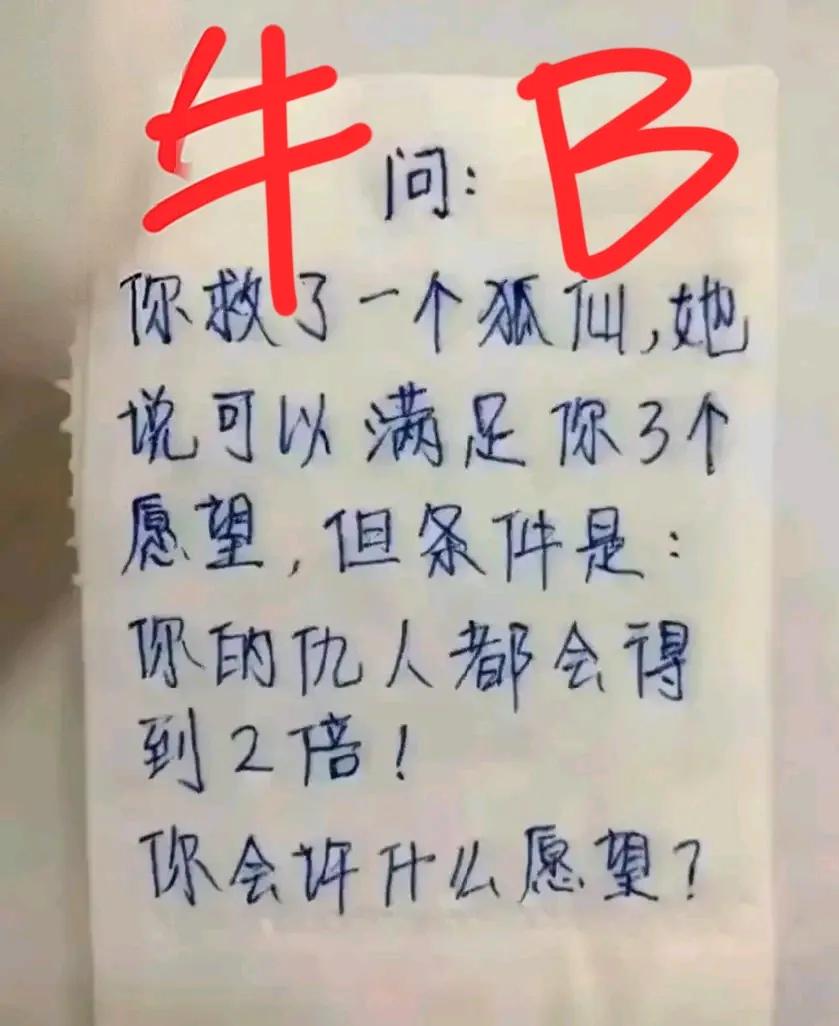 牛 B
问:
你救了一个狐仙,她
说可以满足你3个
愿望,但条件是:
你的仇人都会得
到2倍!
你会许什么愿望?